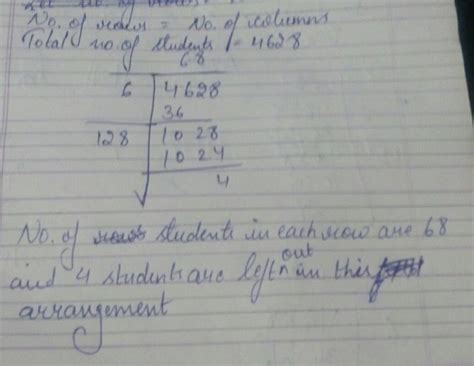 Let no. of rows
No. of rows = No. of columns
Total no. of students = 4628
68
6 4628
36
128 10 28
10 24
4
No. of students in each row are 68
and 4 students are left out in this
arrangement